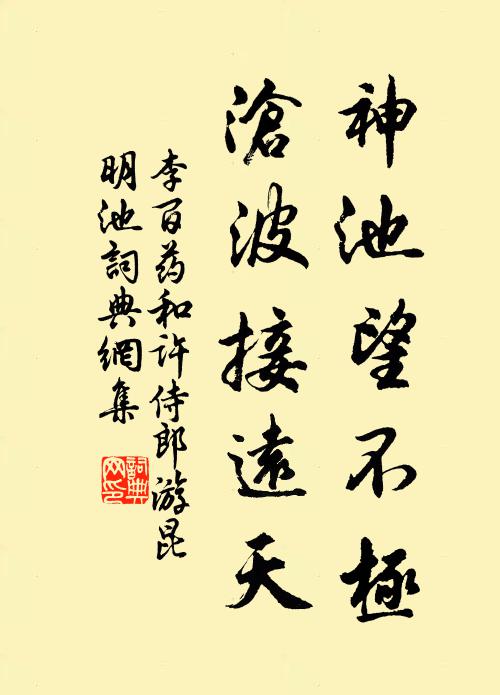 神池望不極
滄波接遠天
李百药和许侍郎游昆
明池詞典網集
詞典
网印